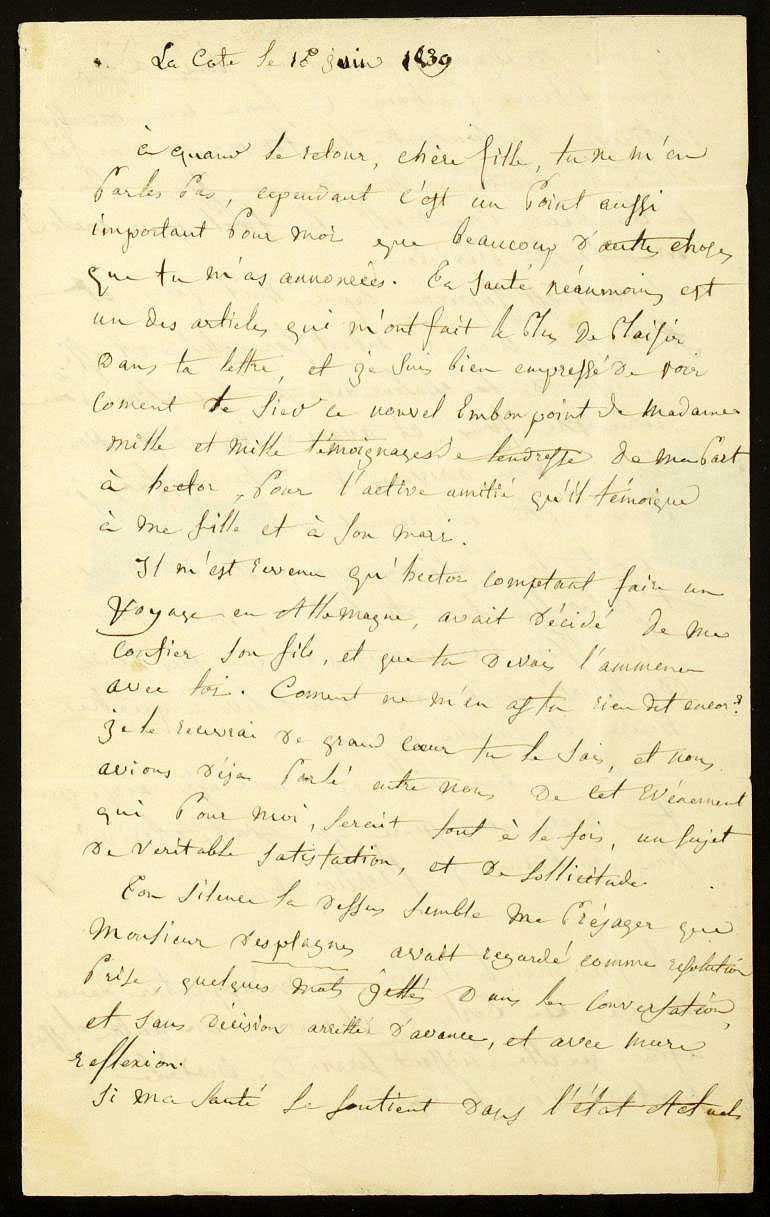 La Cote le 18 juin 1839
à quand le retour, chère fille, tu ne m'en
Parles Pas, cependant c'est un Point aussi
important Pour moi que beaucoup d'autres choses
que tu m'as annoncées. Ta santé néaumoins est
un des articles qui m'ont fait le Plus de Plaisir
Dans ta lettre, et je suis bien empressé de voir
coment te sied ce nouvel Embonpoint de madame
mille et mille témoignages de tendresse de ma Part
à hector, Pour l'active amitié qu'il témoigne
à ma fille et à son mari.
Il m'est revenu qu'hector comptant faire un
Voyage en Allemagne, avait décidé de me
confier son fils, et que tu devais l'ammener
avec toi. Coment ne m'en as tu rien dit encor?
je le recevrai de grand cœur tu le sais, et nous
avions déja Parlé entre nous de cet Evénement
qui Pour moi, serait tout à la fois, un sujet
de veritable satisfaction, et de sollicitude
Ton silence la dessus semble me Présager que
Monsieur desplagnes avait regardé comme resolution
Prise, quelques mots jettés dans la conversation,
et sans décision arrettée d'avance, et avec mure
reflexion.
Si ma santé se soutient dans l'état Actuel